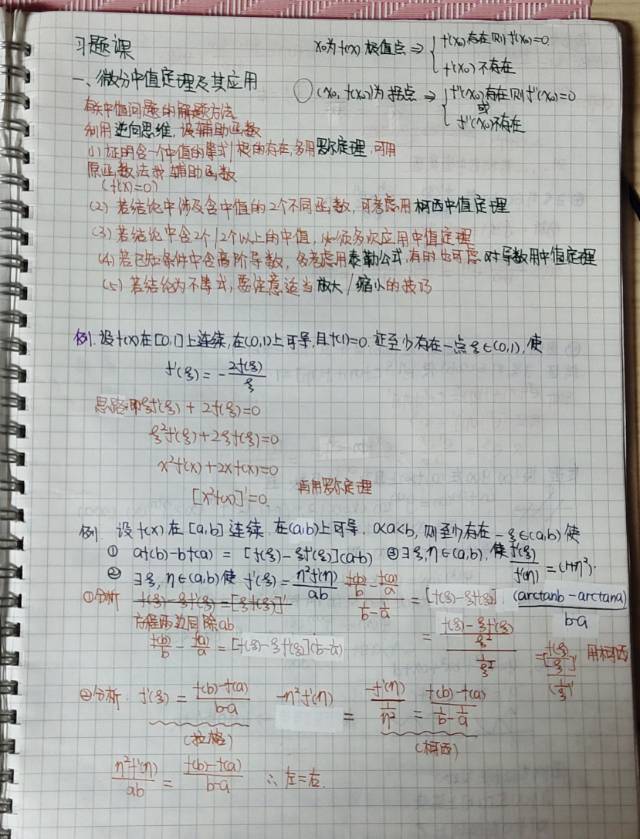 习题课
x₀为f(x)极值点 ⇒ { f'(x₀)存在则f'(x₀)=0.
f'(x₀)不存在
一、微分中值定理及其应用
(x₀, f(x₀))为拐点 ⇒ { f''(x₀)存在则f''(x₀)=0
或
f''(x₀)不存在
有关中值问题的解题方法
利用逆向思维,设辅助函数
(1) 证明含一个中值的等式/根的存在,多用罗尔定理,可用
原函数法找辅助函数
(f(x)=0)
(2) 若结论中涉及含中值的2个不同函数,可考虑用柯西中值定理
(3) 若结论中含2个/2个以上的中值,必须多次应用中值定理
(4) 若已知条件中含高阶导数,多考虑用泰勒公式,有时也可考虑对导数用中值定理
(5) 若结论为不等式,要注意适当放大/缩小的技巧
例. 设f(x)在[0,1]上连续,在(0,1)上可导,且f(1)=0. 证至少存在一点ξ∈(0,1),使
f'(ξ) = -2f(ξ)/ξ
思路:即ξf'(ξ) + 2f(ξ)=0
ξ²f'(ξ)+2ξf(ξ)=0
x²f'(x)+2xf(x)=0
[x²f(x)]'=0. 再用罗尔定理
例 设f(x)在[a,b]连续.在(a,b)上可导. 0<a<b, 则至少存在一ξ∈(a,b)使
① af(b)-bf(a) = [f(ξ)-ξf'(ξ)](a-b) ③∃ξ,η∈(a,b),使 f'(ξ)/f'(η) = (1+η²)·(arctanb-arctana)/(b-a)
② ∃ξ,η∈(a,b)使 f'(ξ)=η²f'(η)/ab
①分析
方程两边同除ab
(f(b)/b - f(a)/a)/(1/b - 1/a) = [f(ξ)-ξf'(ξ)]
f(b)/b - f(a)/a = [f(ξ)-ξf'(ξ)](1/b-1/a)
= ((f(ξ)-ξf'(ξ))/ξ²)/(1/ξ²) = [f(ξ)/ξ]'/(1/ξ)' 用柯西
②分析. f'(ξ)=(f(b)-f(a))/(b-a) -η²f'(η) = -f'(η)/(1/η²) = (f(b)-f(a))/(1/b-1/a)
(拉格) (柯西)
η²f'(η)/ab = (f(b)-f(a))/(b-a) ∴左=右.